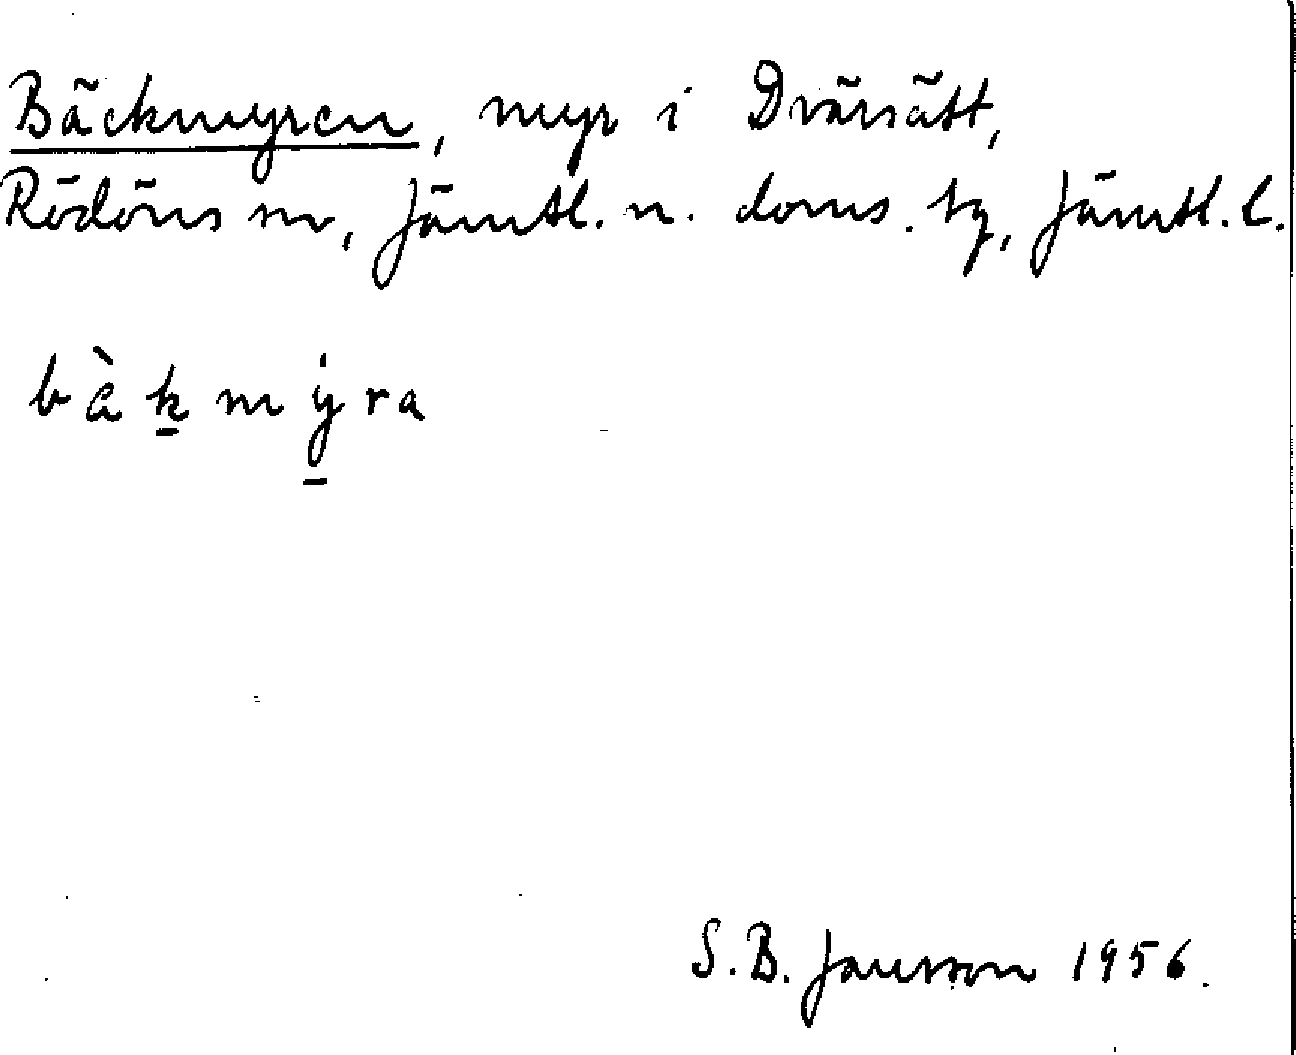 Bäckmyren, myr i Dvärsätt,
Rödöns sn, Jämtl. n. doms. tg, Jämtl. l.
bàk̠mẏ̠ra
S. B. Jansson 1956.